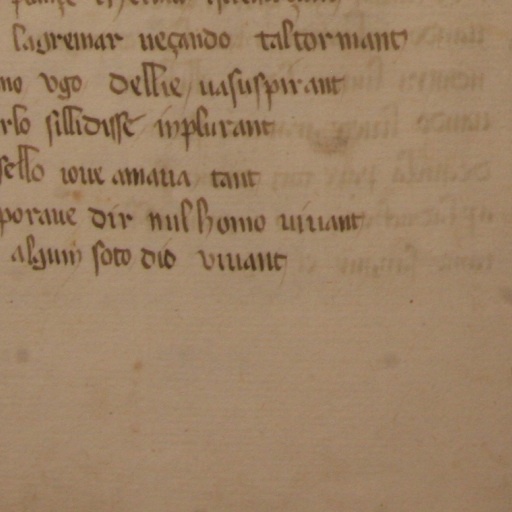 lagremar ueçando tal tormant
no vgo dellie uasuspirant
rlo sillidisse inplurant
sello ioue amaua tant
poraue dir nul homo uiuant
algun soto dio viuant